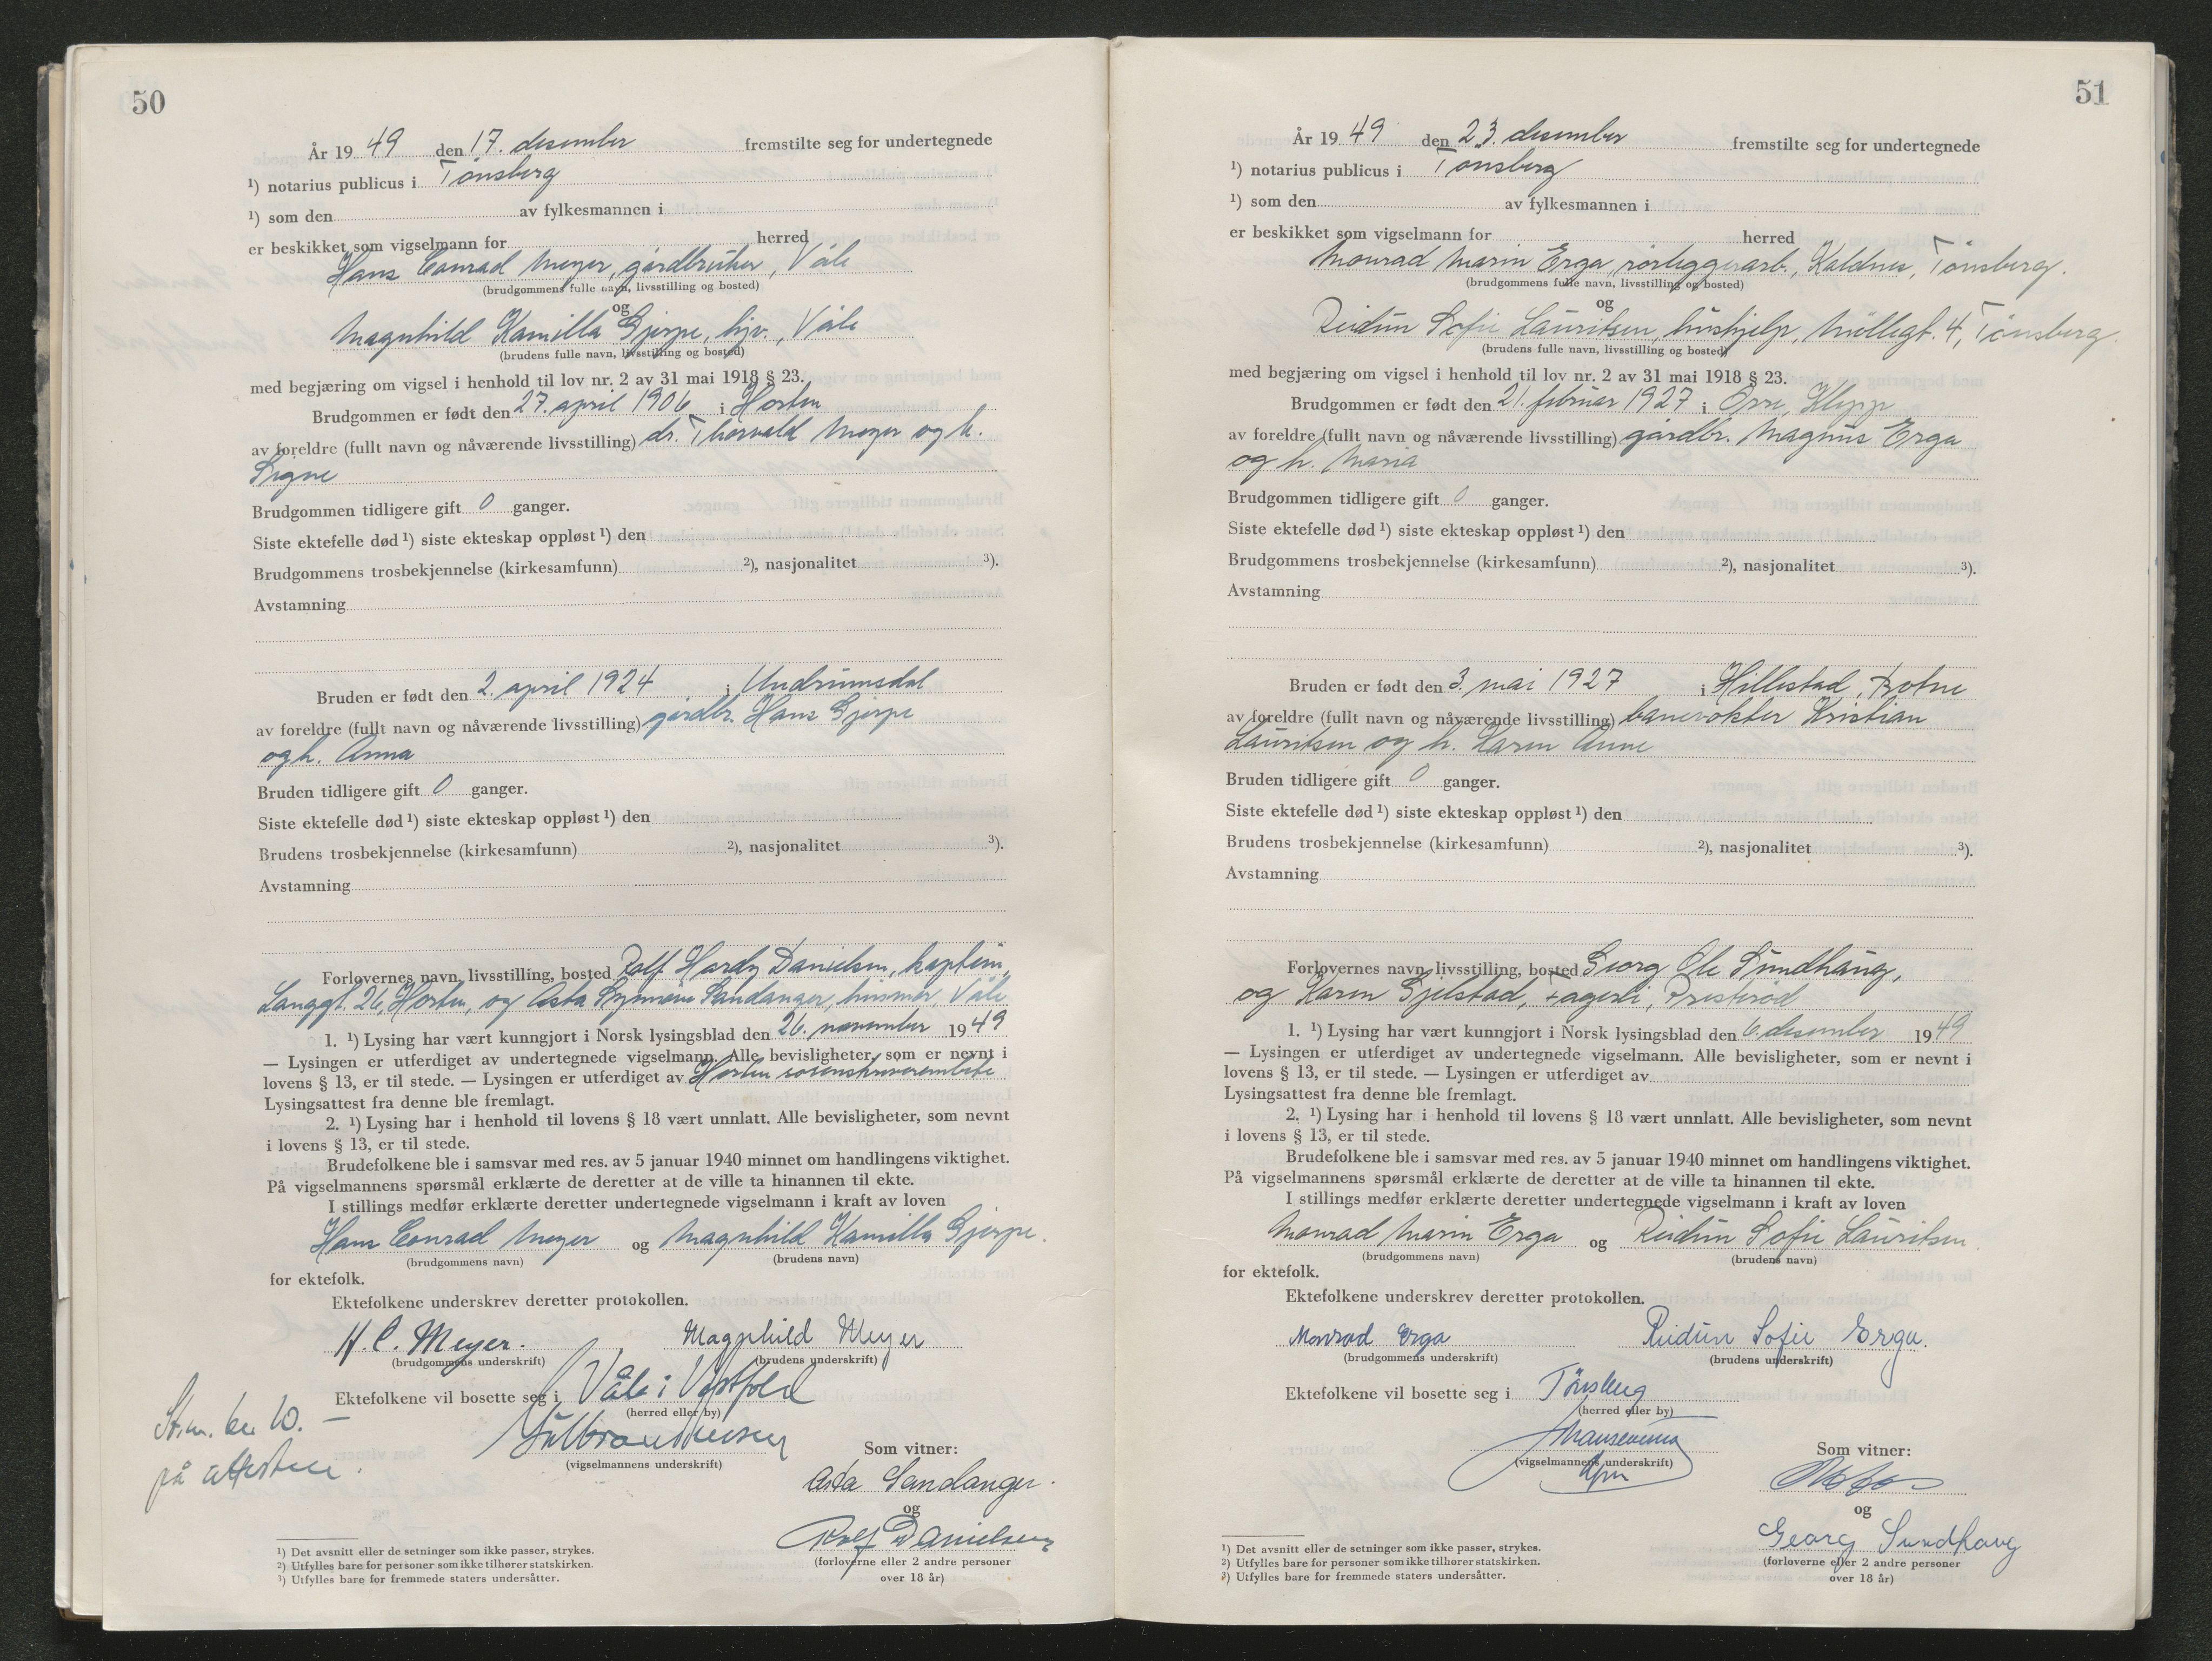 50
År 19 49 den 17. desember fremstilte seg for undertegnede
¹) notarius publicus i Tønsberg
¹) som den av fylkesmannen i
er beskikket som vigselmann for herred
Hans Conrad Meyer, gårdbruker, Våle
(brudgommens fulle navn, livsstilling og bosted)
og
Magnhild Kamilla Gjerpe, hjv., Våle
(brudens fulle navn, livsstilling og bosted)
med begjæring om vigsel i henhold til lov nr. 2 av 31 mai 1918 § 23.
Brudgommen er født den 27. april 1906 i Horten
av foreldre (fullt navn og nåværende livsstilling) dr. Thorvald Meyer og h.
Signe
Brudgommen tidligere gift 0 ganger.
Siste ektefelle død ¹) siste ekteskap oppløst ¹) den
Brudgommens trosbekjennelse (kirkesamfunn) ²), nasjonalitet ³).
Avstamning
Bruden er født den 2. april 1924 i Undrumsdal
av foreldre (fullt navn og nåværende livsstilling) gårdbr. Hans Gjerpe
og h. Anna
Bruden tidligere gift 0 ganger.
Siste ektefelle død ¹) siste ekteskap oppløst ¹) den
Brudens trosbekjennelse (kirkesamfunn) ²), nasjonalitet ³).
Avstamning
Forlovernes navn, livsstilling, bosted Rolf Hardy Danielsen, kaptein,
Langgt. 26, Horten, og Asta Synnøve Sandanger, husmor, Våle
1. ¹) Lysing har vært kunngjort i Norsk lysingsblad den 26. november 1949
— Lysingen er utferdiget av undertegnede vigselmann. Alle bevisligheter, som er nevnt i
lovens § 13, er til stede. — Lysingen er utferdiget av Horten sorenskriverembete
Lysingsattest fra denne ble fremlagt.
2. ¹) Lysing har i henhold til lovens § 18 vært unnlatt. Alle bevisligheter, som nevnt
i lovens § 13, er til stede.
Brudefolkene ble i samsvar med res. av 5 januar 1940 minnet om handlingens viktighet.
På vigselmannens spørsmål erklærte de deretter at de ville ta hinannen til ekte.
I stillings medfør erklærte deretter undertegnede vigselmann i kraft av loven
Hans Conrad Meyer og Magnhild Kamilla Gjerpe.
(brudgommens navn) (brudens navn)
for ektefolk.
Ektefolkene underskrev deretter protokollen.
H. C. Meyer. Magnhild Meyer
(brudgommens underskrift) (brudens underskrift)
Ektefolkene vil bosette seg i Våle i Vestfold
(herred eller by)
(vigselmannens underskrift)
på attesten.
Som vitner:
Asta Sandanger.
og
Rolf Danielsen
(forloverne eller 2 andre personer
over 18 år)
¹) Det avsnitt eller de setninger som ikke passer, strykes.
²) Utfylles bare for personer som ikke tilhører statskirken.
³) Utfylles bare for fremmede staters undersåtter.
51
År 19 49 den 23. desember fremstilte seg for undertegnede
¹) notarius publicus i Tønsberg
¹) som den av fylkesmannen i
er beskikket som vigselmann for herred
Monrad Marin Erga, rørleggerarb., Kaldnes, Tønsberg.
(brudgommens fulle navn, livsstilling og bosted)
og
Reidun Sofie Lauritsen, hushjelp, Møllegt. 4, Tønsberg.
(brudens fulle navn, livsstilling og bosted)
med begjæring om vigsel i henhold til lov nr. 2 av 31 mai 1918 § 23.
Brudgommen er født den 21. februar 1927 i Orre, Klepp
av foreldre (fullt navn og nåværende livsstilling) gårdbr. Magnus Erga
og h. Maria
Brudgommen tidligere gift 0 ganger.
Siste ektefelle død ¹) siste ekteskap oppløst ¹) den
Brudgommens trosbekjennelse (kirkesamfunn) ²), nasjonalitet ³).
Avstamning
Bruden er født den 3. mai 1927 i Hillestad, Botne
av foreldre (fullt navn og nåværende livsstilling) banevokter Kristian
Lauritsen og h. Karen Anne
Bruden tidligere gift 0 ganger.
Siste ektefelle død ¹) siste ekteskap oppløst ¹) den
Brudens trosbekjennelse (kirkesamfunn) ²), nasjonalitet ³).
Avstamning
Forlovernes navn, livsstilling, bosted Georg Ole Sundhaug,
og Karen Gjelstad, Fagerli, Presterød
1. ¹) Lysing har vært kunngjort i Norsk lysingsblad den 6. desember 1949
— Lysingen er utferdiget av undertegnede vigselmann. Alle bevisligheter, som er nevnt i
lovens § 13, er til stede. — Lysingen er utferdiget av
Lysingsattest fra denne ble fremlagt.
2. ¹) Lysing har i henhold til lovens § 18 vært unnlatt. Alle bevisligheter, som nevnt
i lovens § 13, er til stede.
Brudefolkene ble i samsvar med res. av 5 januar 1940 minnet om handlingens viktighet.
På vigselmannens spørsmål erklærte de deretter at de ville ta hinannen til ekte.
I stillings medfør erklærte deretter undertegnede vigselmann i kraft av loven
Monrad Marin Erga og Reidun Sofie Lauritsen.
(brudgommens navn) (brudens navn)
for ektefolk.
Ektefolkene underskrev deretter protokollen.
Monrad Erga Reidun Sofie Erga.
(brudgommens underskrift) (brudens underskrift)
Ektefolkene vil bosette seg i Tönsberg
(herred eller by)
(vigselmannens underskrift)
Som vitner:
og
Georg Sundhaug
(forloverne eller 2 andre personer
over 18 år)
¹) Det avsnitt eller de setninger som ikke passer, strykes.
²) Utfylles bare for personer som ikke tilhører statskirken.
³) Utfylles bare for fremmede staters undersåtter.